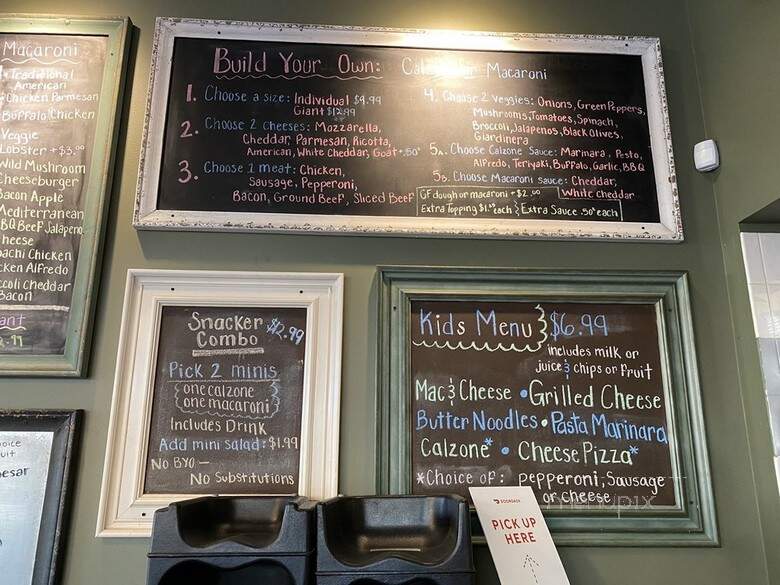 Macaroni
Traditional
American
Chicken Parmesan
Buffalo Chicken
Veggie
Lobster +$3.00
Wild Mushroom
Cheeseburger
Bacon Apple
Mediterranean
BQ Beef Jalapeno
heese
achi Chicken
cken Alfredo
ccoli Cheddar
Bacon
ant
Build Your Own: Macaroni
1. Choose a size: Individual $9.99
Giant $12.99
2. Choose 2 cheeses: Mozzarella,
Cheddar, Parmesan, Ricotta,
American, White Cheddar, Goat +.50
3. Choose 1 meat: Chicken,
Sausage, Pepperoni,
Bacon, Ground Beef, Sliced Beef
4. Choose 2 Veggies: Onions, Green Peppers,
Mushrooms, Tomatoes, Spinach,
Broccoli, Jalapenos, Black Olives,
Giardinera
5a. Choose Calzone Sauce: Marinara, Pesto,
Alfredo, Teriyaki, Buffalo, Garlic, BBQ
5b. Choose Macaroni sauce: Cheddar,
White cheddar
GF dough or macaroni +$2.00
Extra Topping $1.50 each Extra Sauce .50¢ each
Snacker $12.99
Combo
Pick 2 minis
one calzone
one macaroni
Includes Drink
Add mini salad: $1.99
No BYO —
No Substitutions
Kids Menu $6.99
includes milk or
juice & chips or fruit
Mac & Cheese • Grilled Cheese
Butter Noodles • Pasta Marinara
Calzone* • Cheese Pizza*
*Choice of: pepperoni, Sausage
or cheese
DOORDASH
PICK UP
HERE
oice
uit
esar
menupix